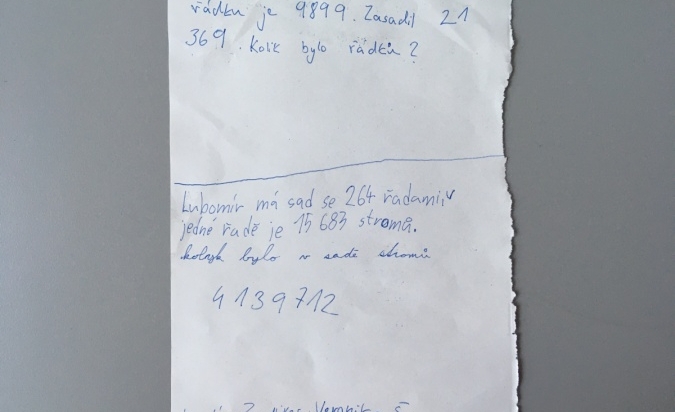 řádku je 9899. Zasadil 21
369. Kolik bylo řádků?
Lubomír má sad se 264 řadami, v
jedné řadě je 15 683 stromů.
kolyk bylo v sadě stromů
4139712